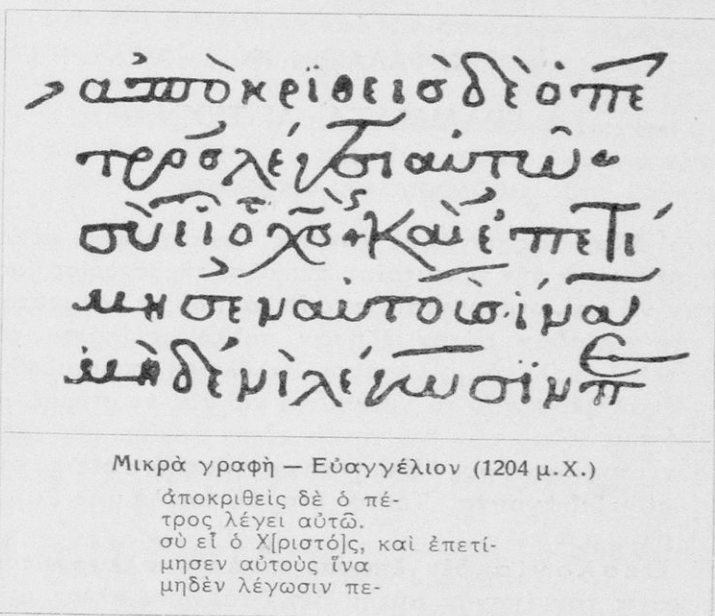 ἀποκρϊθεὶσ δὲ ὁ πε
τροσ λέγει αυτῶ·
σὺ εἶ ὁ χ̅σ̅ + Καὶ ἐπετί
μησεν αὐτοῖσ ἵνα
μηδενὶ λέγωσϊν π
Μικρὰ γραφὴ — Εὐαγγέλιον (1204 μ.Χ.)
ἀποκριθεὶς δὲ ὁ πέ-
τρος λέγει αὐτῶ.
σὺ εἶ ὁ Χ[ριστό]ς, καὶ ἐπετί-
μησεν αὐτοὺς ἵνα
μηδὲν λέγωσιν πε-